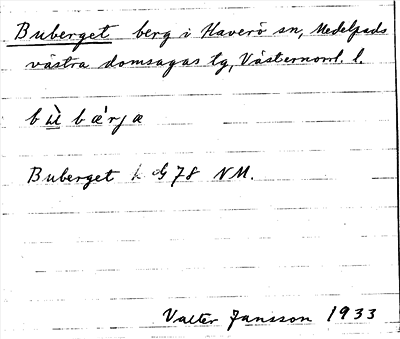 Buberget berg i Haverö sn, Medelpads
västra domsagas tg, Västernorrl. l.
bù bæ'rjæ
Buberget k G 78 NM.
Valter Jansson 1933